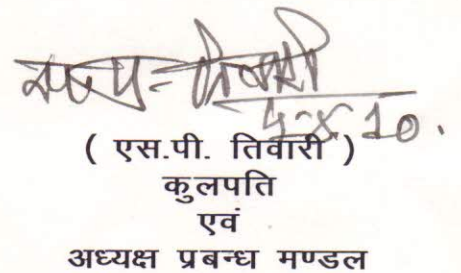 5-8-10.
( एस.पी. तिवारी )
कुलपति
एवं
अध्यक्ष प्रबन्ध मण्डल